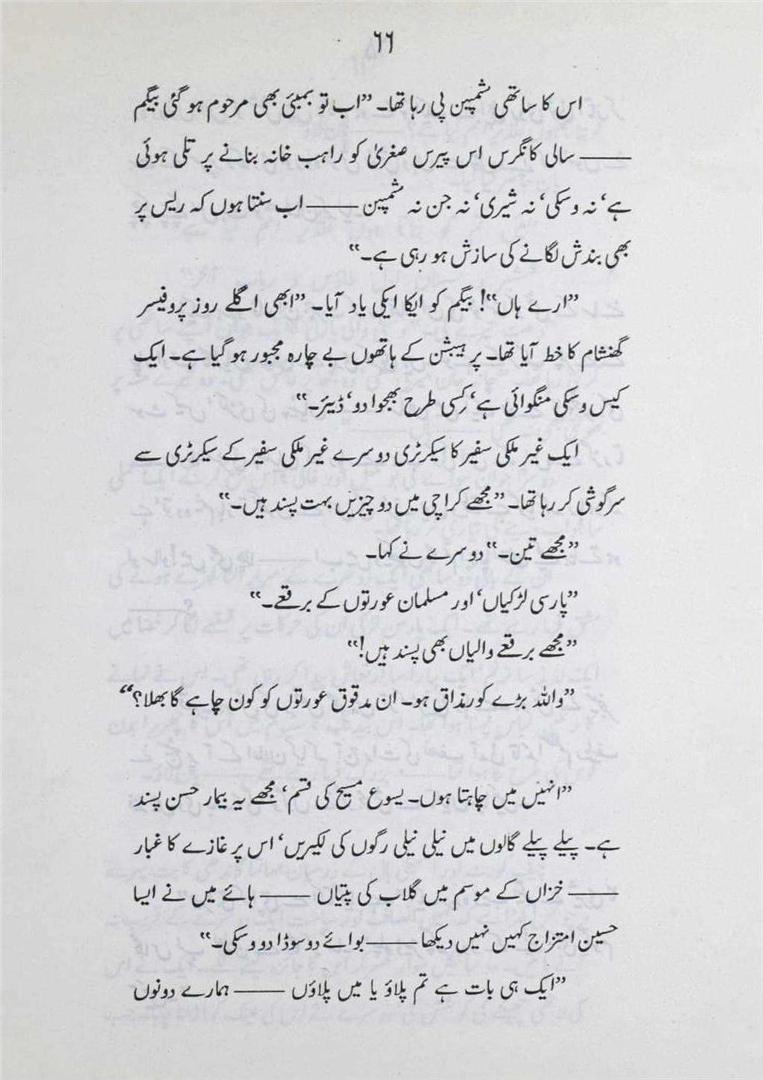 ٦٦
اس کا ساتھی شمپین پی رہا تھا۔ ”اب تو بمبئی بھی مرحوم ہو گئی بیگم
—— سالی کانگرس اس پیرس صغریٰ کو راہب خانہ بنانے پر تلی ہوئی
ہے‘ نہ وسکی‘ نہ شیری‘ نہ جن نہ شمپین —— اب سنتا ہوں کہ ریس پر
بھی بندش لگانے کی سازش ہو رہی ہے۔“
”ارے ہاں“! بیگم کو ایکا ایکی یاد آیا۔ ”ابھی اگلے روز پروفیسر
گھنشام کا خط آیا تھا۔ پر ہیبشن کے ہاتھوں بے چارہ مجبور ہو گیا ہے۔ ایک
کیس وسکی منگوائی ہے‘ کسی طرح بھجوا دو‘ ڈیئر۔“
ایک غیر ملکی سفیر کا سیکرٹری دوسرے غیر ملکی سفیر کے سیکرٹری سے
سرگوشی کر رہا تھا۔ ”مجھے کراچی میں دو چیزیں بہت پسند ہیں۔“
”مجھے تین۔“ دوسرے نے کہا۔
”پارسی لڑکیاں‘ اور مسلمان عورتوں کے برقعے۔“
”مجھے برقعے والیاں بھی پسند ہیں!“
”واللہ بڑے کور مذاق ہو۔ ان مدقوق عورتوں کو کون چاہے گا بھلا؟“
”انہیں میں چاہتا ہوں۔ یسوع مسیح کی قسم‘ مجھے یہ بیمار حسن پسند
ہے۔ پیلے پیلے گالوں میں نیلی نیلی رگوں کی لکیریں‘ اس پر غازے کا غبار
—— خزاں کے موسم میں گلاب کی پتیاں —— ہائے میں نے ایسا
حسین امتزاج کہیں نہیں دیکھا —— بوائے دو سوڈا دو وسکی۔“
”ایک ہی بات ہے تم پلاؤ یا میں پلاؤں —— ہمارے دونوں